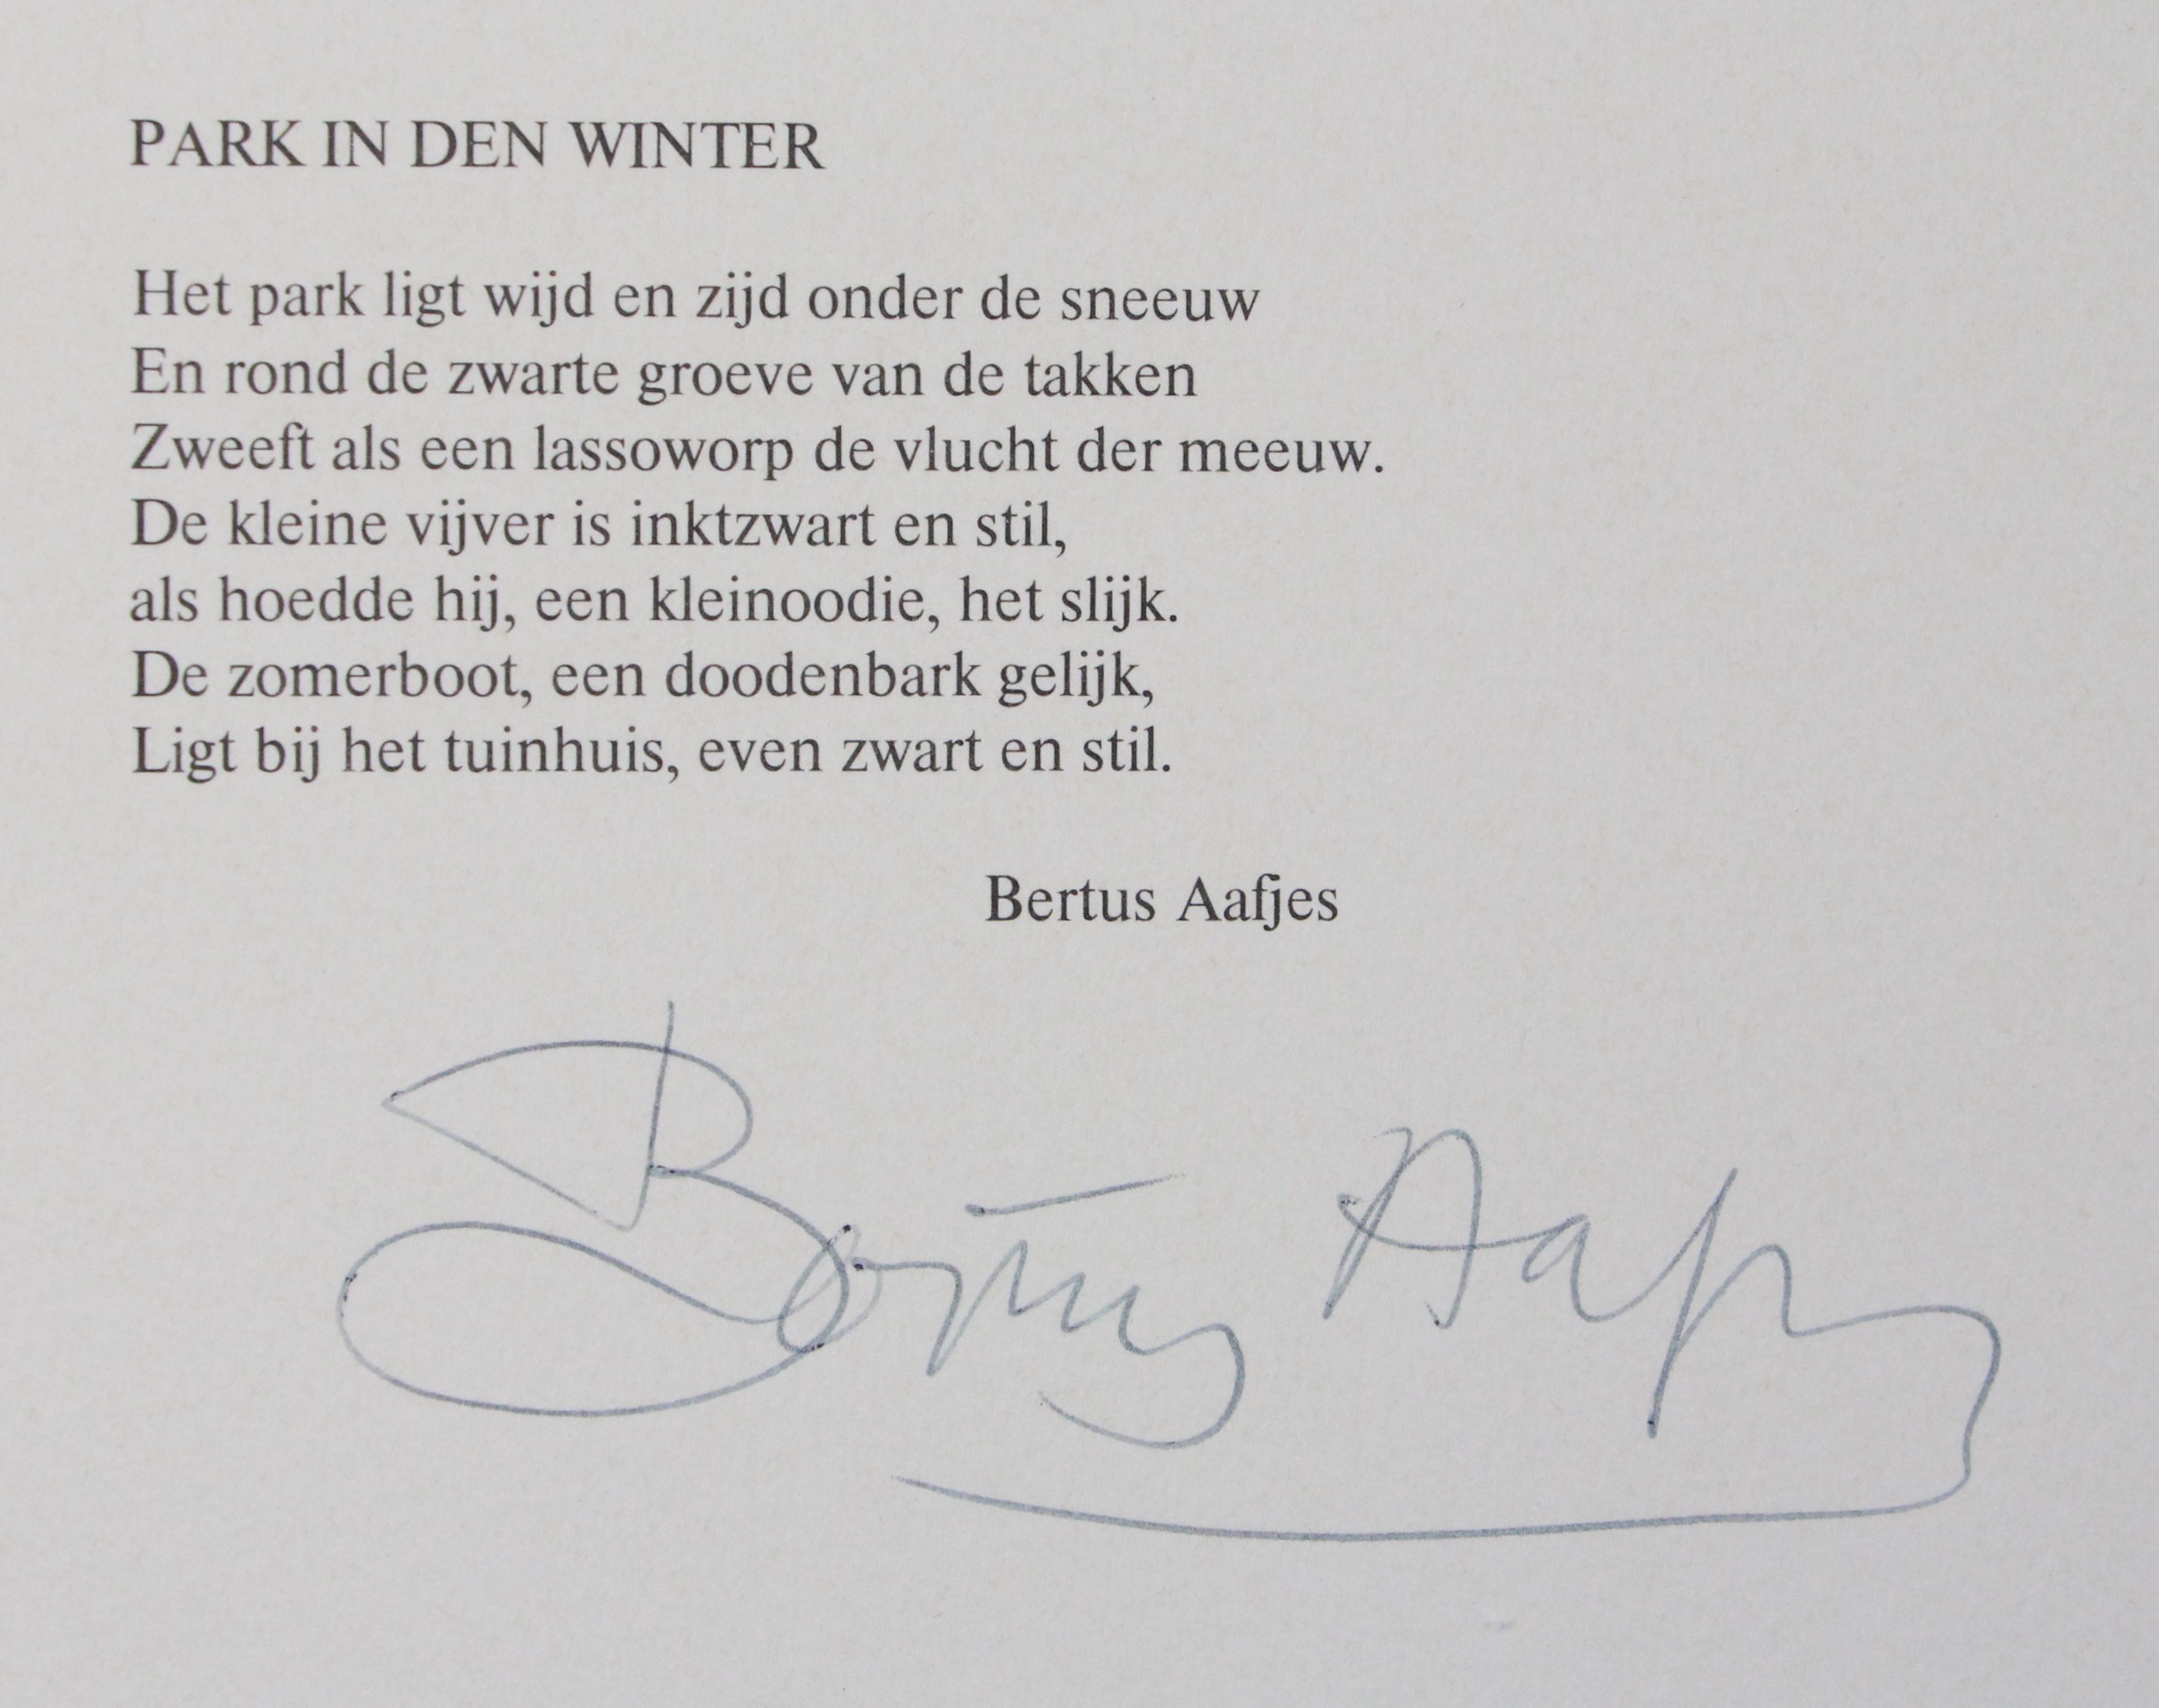 PARK IN DEN WINTER
Het park ligt wijd en zijd onder de sneeuw
En rond de zwarte groeve van de takken
Zweeft als een lassoworp de vlucht der meeuw.
De kleine vijver is inktzwart en stil,
als hoedde hij, een kleinoodie, het slijk.
De zomerboot, een doodenbark gelijk,
Ligt bij het tuinhuis, even zwart en stil.
Bertus Aafjes
Bertus Aafjes